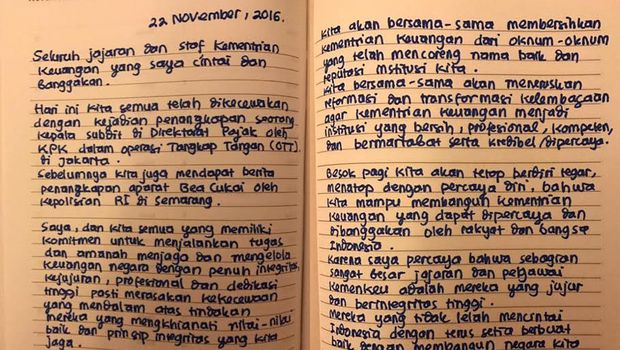 22 November, 2016.
Seluruh jajaran dan staf Kementrian
Keuangan yang saya cintai dan
banggakan.
Hari ini kita semua telah dikecewakan
dengan kejadian penangkapan seorang
kepala subdit di Direktorat Pajak oleh
KPK dalam operasi Tangkap Tangan (OTT).
di Jakarta.
Sebelumnya kita juga mendapat berita
penangkapan aparat Bea Cukai oleh
Kepolisian RI di Semarang.
Saya, dan kita semua yang memiliki
komitmen untuk menjalankan tugas
dan amanah menjaga dan mengelola
keuangan negara dengan penuh integritas,
kejujuran, profesional dan dedikasi
tinggi pasti merasakan kekecewaan
yang mendalam atas tindakan
mereka yang mengkhianati nilai-nilai
baik dan prinsip integritas yang kita
jaga.
Kita akan bersama-sama membersihkan
Kementrian Keuangan dari oknum-oknum
yang telah mencoreng nama baik dan
reputasi institusi kita.
Kita bersama-sama akan meneruskan
reformasi dan transformasi kelembagaan
agar kementrian keuangan menjadi
institusi yang bersih, profesional, kompeten,
dan bermartabat serta kredibel/dipercaya.
Besok pagi kita akan tetap berdiri tegar,
menatap dengan percaya diri, bahwa
kita mampu membangun kementrian
keuangan yang dapat dipercaya dan
dibanggakan oleh rakyat dan bangsa
Indonesia.
Karena saya percaya bahwa sebagian
sangat besar jajaran dan pegawai
Kemenkeu adalah mereka yang jujur
dan berintegritas tinggi.
Mereka yang tidak lelah mencintai
Indonesia dengan terus setia berbuat
baik dengan membangun negara kita